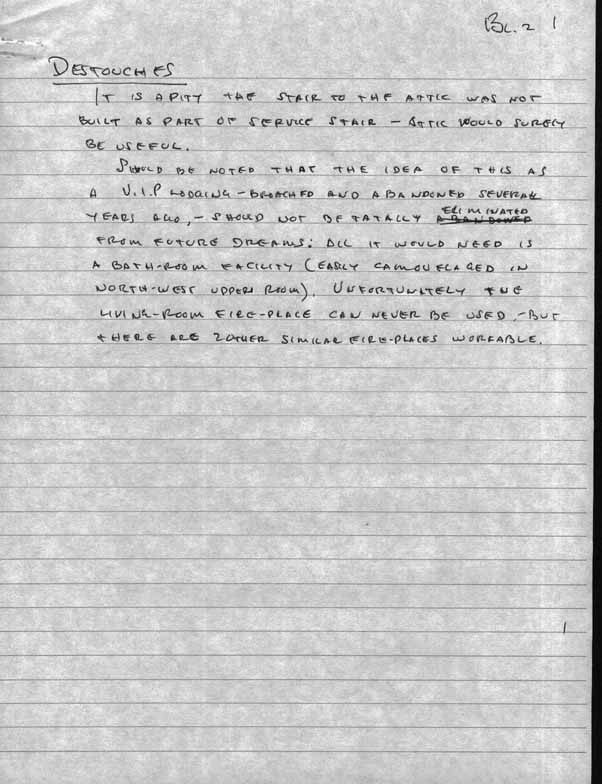 BL.2 1
DESTOUCHES
IT IS A PITY THE STAIR TO THE ATTIC WAS NOT
BUILT AS PART OF SERVICE STAIR – ATTIC WOULD SURELY
BE USEFUL.
SHOULD BE NOTED THAT THE IDEA OF THIS AS
A V.I.P LODGING – BROACHED AND ABANDONED SEVERAL
YEARS AGO, – SHOULD NOT BE TATALLY ELIMINATED ABANDONED
FROM FUTURE DREAMS: ALL IT WOULD NEED IS
A BATH-ROOM FACILITY (EASILY CAMOUFLAGED IN
NORTH-WEST UPPER ROOM). UNFORTUNATELY THE
LIVING-ROOM FIRE-PLACE CAN NEVER BE USED, – BUT
THERE ARE 2 OTHER SIMILAR FIRE-PLACES WORKABLE.
1